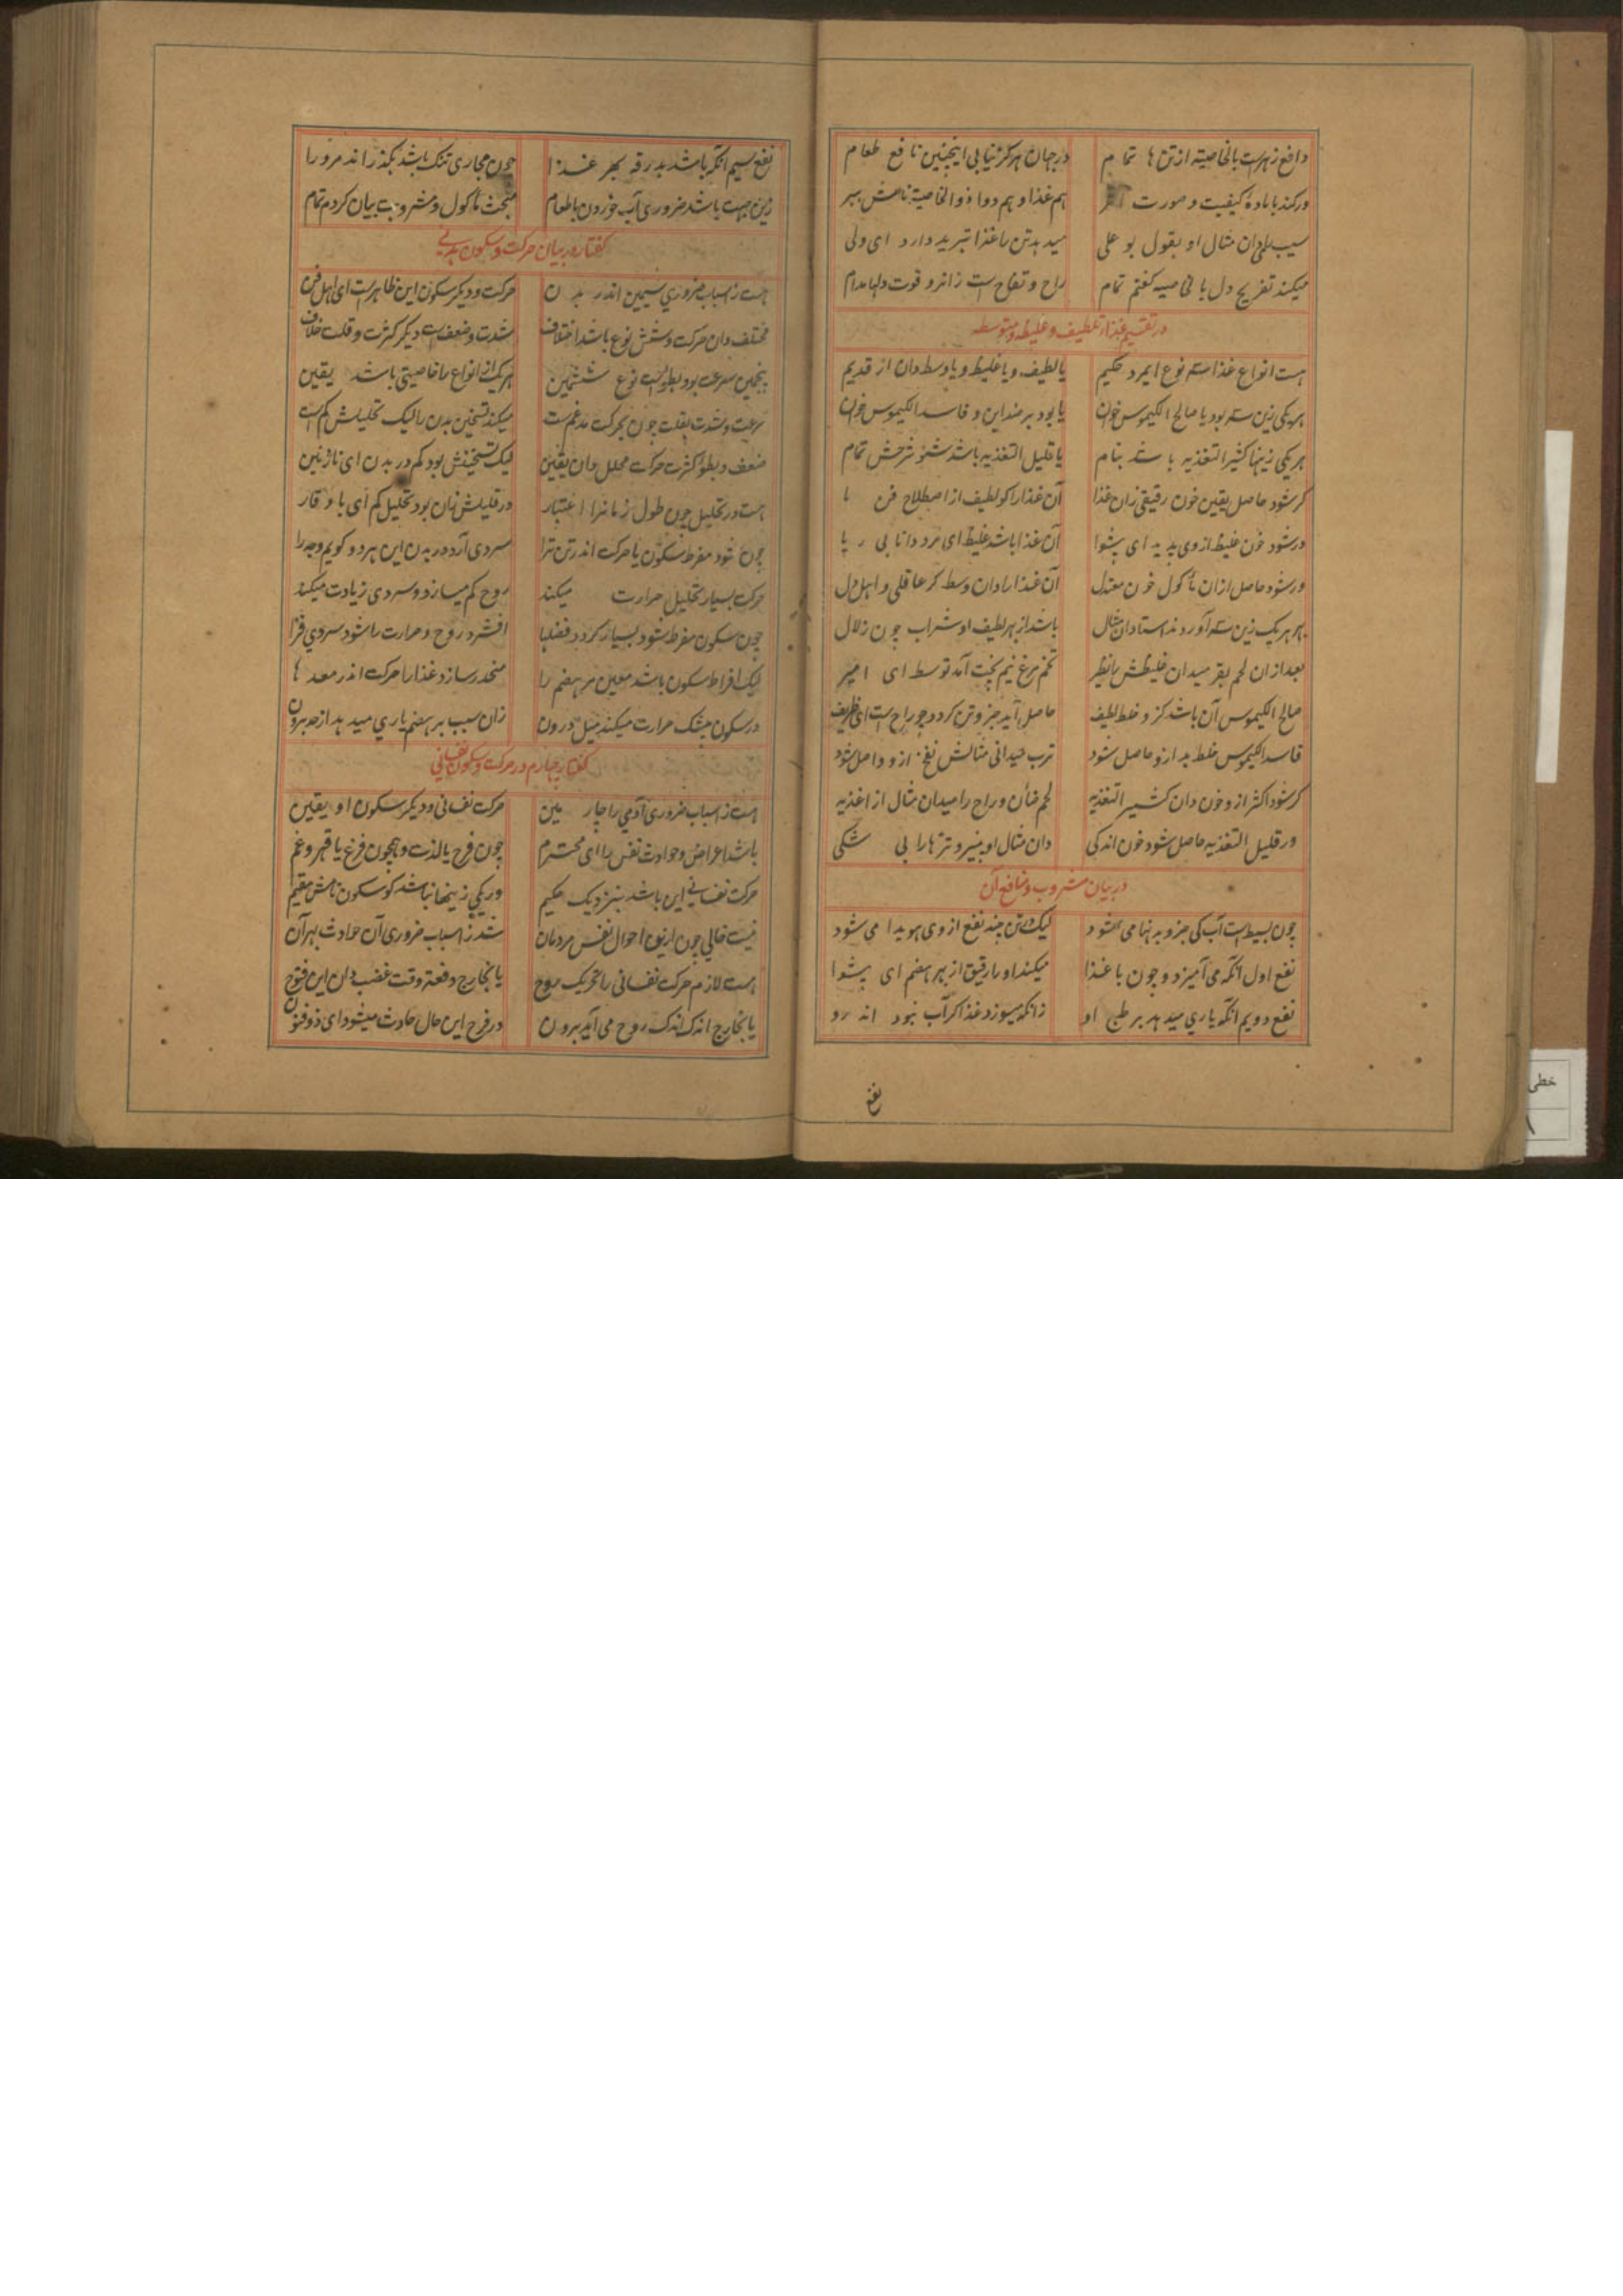 دافع زهرست بالخاصیته از تن ها تمام در جهان هرگز نیابی اینچنین نافع طعام
ورکند با ماده کیفیت و صورت اثر هم غذا و هم دوا ذوالخاصیته نامش ببر
سیب میدان مثال او بقول بو علی میدهد تن را غذا تبرید دارد ای ولی
میکند تفریح دل بالخاصیه گفتم تمام راح و تفاح است زانرو قوت دلها مدام
در تقسیم غذا از لطیف و غلیظ و متوسط
هست انواع غذا سه نوع ای مرد حکیم یا لطیف و یا غلیظ و یا وسط دان از قدیم
هر یکی زین سه بود یا صالح الکیموس خوان یا بود بر ضد این و فاسد الکیموس خوان
هر یکی زینها کثیر التغذیه باشد بنام یا قلیل التغذیه باشد شنو شرحش تمام
گر شود حاصل یقین خون رقیقی زان غذا آن غذا را گو لطیف از اصطلاح فن ما
ور شود خون غلیظ از وی پدید ای پیشوا آن غذا باشد غلیظ ای مرد دانا بی ریا
ور شود حاصل ازان مأکول خون معتدل آن غذا را دان وسط گر عاقلی و اهل دل
بهر هر یک زین سه آوردند استادان مثال باشد از بهر لطیف او شراب چون زلال
بعد ازان لحم بقر میدان غلیظش را نظیر تخم مرغ نیم پخت آمد توسط ای امیر
صالح الکیموس آن باشد کزو خلط لطیف حاصل آید جزو تن گردد چو راح است ای ظریف
فاسد الکیموس خلط بد ازو حاصل شود ترب میدانی مثالش نفخ ازو واصل شود
گر شود اکثر ازو خون دان کثیر التغذیه لحم ضأن و راح را میدان مثال از اغذیه
ور قلیل التغذیه حاصل شود خون اندکی دان مثال او پنیر و ترّه‌ها را بی شکی
در بیان مشروب و منافع آن
چون بسیط است آب کی جزو بدنها می شود لیک در تن چند نفع از وی هویدا می شود
نفع اول آنکه می آمیزد و چون با غذا میکند او را رقیق از بهر هضم ای پیشوا
نفع دویم آنکه یاری میدهد بر طبخ او زانکه میسوزد غذا گر آب نبود اندرو
نفع
نفع سیم آنکه باشد بدرقه بهر غذا چون مجاری تنگ باشد بگذراند مرورا
زین جهت باشد ضروری آب خوردن با طعام مبحث مأکول و مشروب بیان کردم تمام
گفتار در بیان حرکت و سکون بدنی
هست ز اسباب ضروری سیمین اندر بدن حرکت و دیگر سکون این ظاهرست ای اهل فن
مختلف دان حرکت و شش نوع باشد اختلاف شدت و ضعف است دیگر کثرت و قلت خلاف
پنجمین سرعت بود بطو است نوع ششمین هر یک از انواع را خاصیتی باشد یقین
سرعت و شدت بقلت چون بحرکت مدغم است میکند تسخین بدن را لیک تحلیلش کم است
ضعف و بطو و کثرت حرکت محلل دان یقین لیک تسخینش بود کم در بدن ای نازنین
هست در تحلیل چون طول زمانرا اعتبار در قلیلش زان بود تحلیل کم ای با وقار
چون شود مفرط سکون یا حرکت اندر تن ترا سردی آرد در بدن این هر دو گویم وجه را
حرکت بسیار تحلیل حرارت میکند روح کم میسازد و سردی زیادت میکند
چون سکون مفرط شود بسیار گردد فضلها افشرد روح و حرارت را شود سردی فزا
لیک افراط سکون باشد معین مر هضم را منحدر سازد غذا را حرکت اندر معدها
در سکون بیشک حرارت میکند میل درون زان سبب بر هضم یاری میدهد از حد برون
گفتار چهارم در حرکت و سکون نفسانی
هست ز اسباب ضروری آدمی را چارمین حرکت نفسانی و دیگر سکون او یقین
باشد اعراض و حوادث نفس را ای محترم چون فرح یا لذت و همچون فزع یا قهر و غم
حرکت نفسانی این باشد بنزدیک حکیم ور یکی زینها نباشد گو سکون نامش مقیم
نیست خالی چون ازین احوال نفس مردمان شد ز اسباب ضروری آن حوادث بهر آن
هست لازم حرکت نفسانی را تحریک روح یا بخارج دفعة وقت غضب دان این فتوح
یا بخارج اندک اندک روح می آید برون در فرح این حال حادث میشود ای ذوفنون
خطی